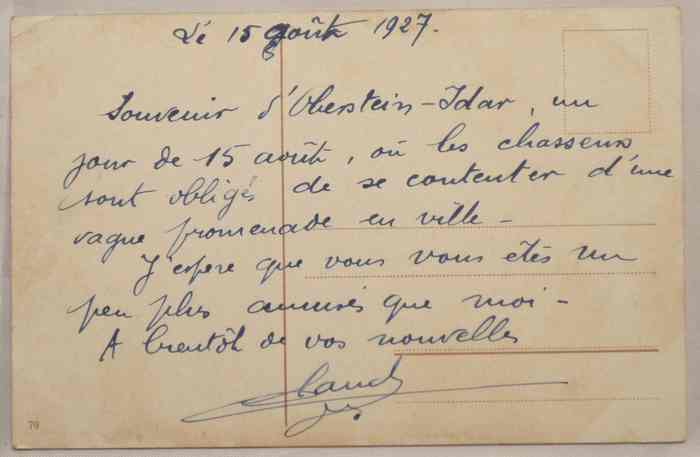 Le 15 août 1927.
Souvenir d'Oberstein-Idar, un
jour de 15 août, où les chasseurs
sont obligés de se contenter d'une
vague promenade en ville -
J'espère que vous vous êtes un
peu plus amusés que moi -
A bientôt de vos nouvelles
70